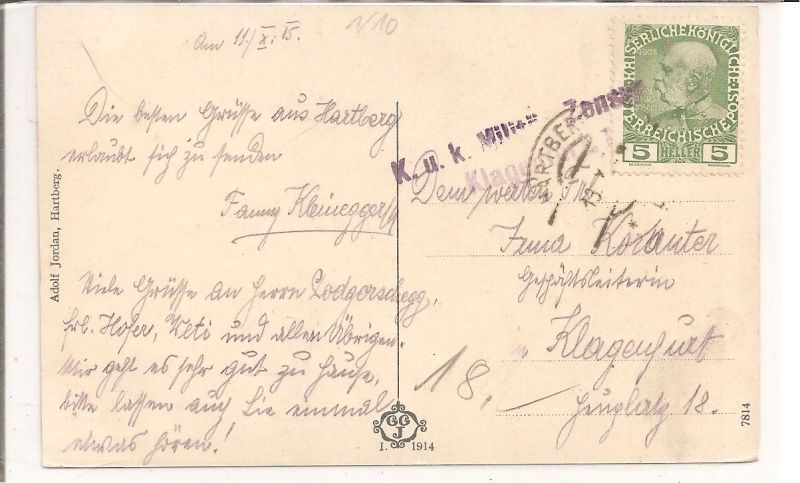 Am 11./X. 15.
1/10
Die besten Grüsse aus Hartberg
erlaubt sich zu senden
Fanny Kleinegger
Viele Grüsse an Herrn Podgorschegg,
Frl. Hofer, Keti und allen Übrigen.
Mir geht es sehr gut zu Hause,
bitte lassen auch Sie einmal
etwas hören!
Adolf Jordan, Hartberg.
GG
J
I. 1914
K. u. k. Militär-Zensur
HARTBERG
KAISERLICHEKÖNIGLICHE
ÖSTERREICHISCHEPOST
1908
5 HELLER 5
Dem werten
Irma Korauter
Geschäftsleiterin
in Klagenfurt
Heuplatz 18.
18.
7814